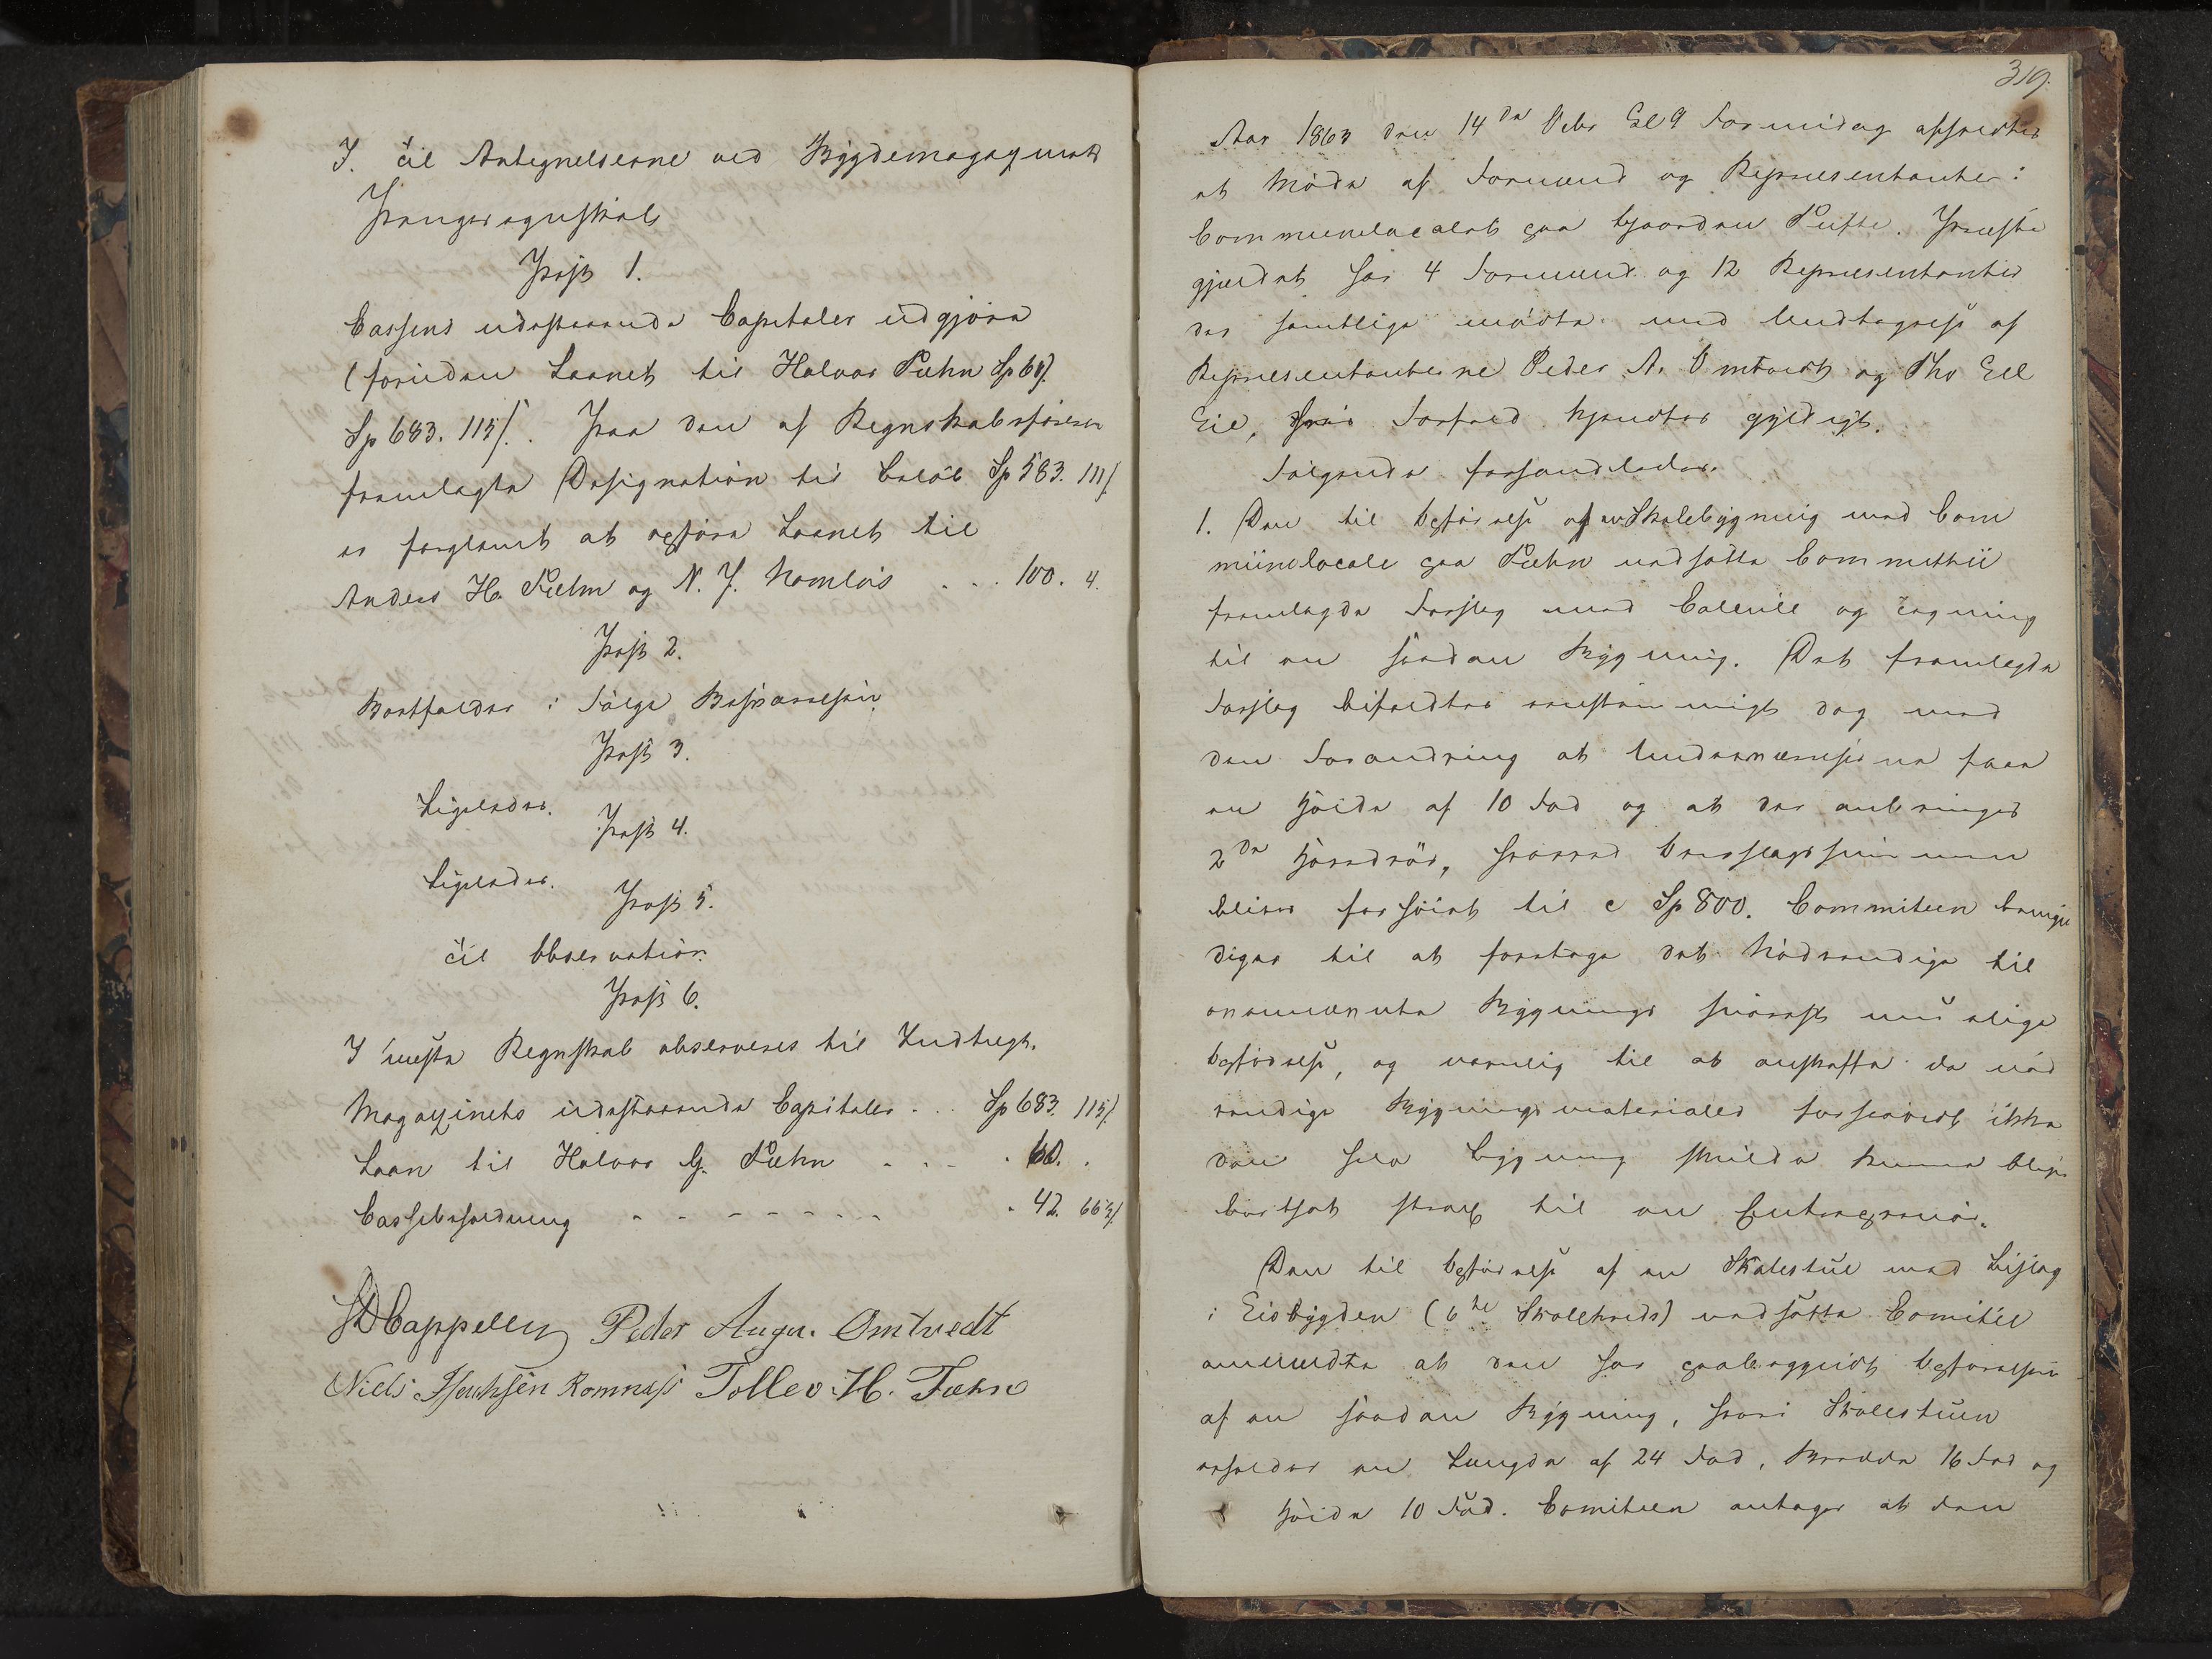 I. Til Antegnelserne ved Bygdemagazinets
Pengeregnskab
Post 1.
Cassens udestaaende Capitaler udgjöre
(foruden Laanet til Halvor Fæhn Sp 60)
Sp 683. 115 /. Paa den af Regnskabsföreren
fremlagte Designation til Belöb Sp 583. 111/
er forglemt at opföre Laanet til
Anders H. Fæhn og N. J. Romnæs . . . 100. 4.
Post 2.
Bortfalder i Fölge Besvarelsen.
Post 3.
Ligeledes.
Post 4.
Ligeledes.
Post 5.
Til Observation.
Post 6.
I næste Regnskab observeres til Indtægt.
Magazinets udestaaende Capitaler . . . Sp 683. 115/.
Laan til Halvor G. Fæhn . . . . 60. .
Cassebeholdning - - - - - - - . 42. 66 /
Cappelen Peder Augu. Omtvedt
Niels Isachsen Romnæs Tollev H. Fæhn
319.
Aar 1863 den 14de Kl 9 Formidag afholdtes
et Möde af Formænd og Repræsentanter i
Communelocalet paa Gaarden Tufte. Præste
gjeldet har 4 Formænd og 12 Repræsentanter
der samtlige mödte med Undtagelse af
Repræsentanterne Peder A. Omtvedt og Tho
Eie, hvis Forfald kjendtes gyldigt.
Fölgende forhandledes.
1. Den til Opförelse af en Skolebygning med Com
munelocale paa Fæhn nedsatte Committee
fremlagde Forslag med Calcule og Tegning
til en saadan Bygning. Det fremlagde
Forslag bifaldtes eenstemmigt dog med
den Forandring at Underværelserne faaer
en Höide af 10 Fod og at der anbringes
2de Hoveddör, hvorved Overslagssummen
bliver forhöiet til c Sp 800. Committeen bemyn
diges til at foretage det Nödvendige til
ovennævnte Bygnings snarest mulige
Opförelse, og navnlig til at anskaffe de nöd
vendige Bygningsmaterialer forsaavidt ikke
den hele Bygning skulde kunne blive
bortsat strax til en Entreprenör.
Den til Opförelse af en Skolestue med Tilslag
i Eisbygden (6te Skolekreds) nedsatte Comitee
anmeldte at den har paabegyndt Opförelsen
af en saadan Bygning, hvori Skolestuen
erholder en Længde af 24 Fod, Bredde 16 Fod og
Höide 10 Fod. Comiteen antager at den